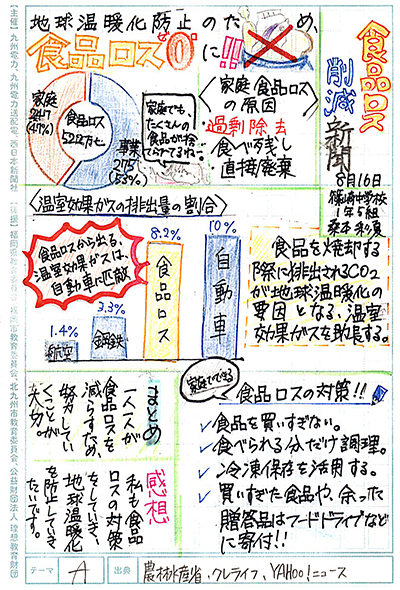 食品ロス
削減
新聞
8月16日
篠崎中学校
1年5組
地球温暖化防止のため、
食品ロス"0"に!!
家庭
247
(47%)
食品ロス
522万t
事業
275
(53%)
家庭でも、
たくさんの
食品が捨
てられてるね…
〈家庭食品ロス
の原因〉
過剰除去
食べ残し
直接廃棄
〈温室効果ガスの排出量の割合〉
食品ロスから出る、
温室効果ガスは、
自動車に匹敵
1.4%
航空
3.3%
鉄鋼
8.2%
食品ロス
10%
自動車
食品を焼却する
際に排出されるCO2
が地球温暖化の
要因となる、温室
効果ガスを助長する。
まとめ
一人一人が
食品ロスを
減らすため、
努力してい
くことが
大切。
感想
私も食品
ロスの対策
をしていき、
地球温暖化
を防止して
いきたいです。
家庭でできる
食品ロスの対策!!
✓食品を買いすぎない。
✓食べられる分だけ調理。
✓冷凍保存を活用する。
✓買いすぎた食品や、余った
贈答品はフードドライブなど
に寄付!!
テーマ A 出典 農林水産省、クレライフ、YAHOO!ニュース
【主催】九州電力、九州電力送配電、西日本新聞社